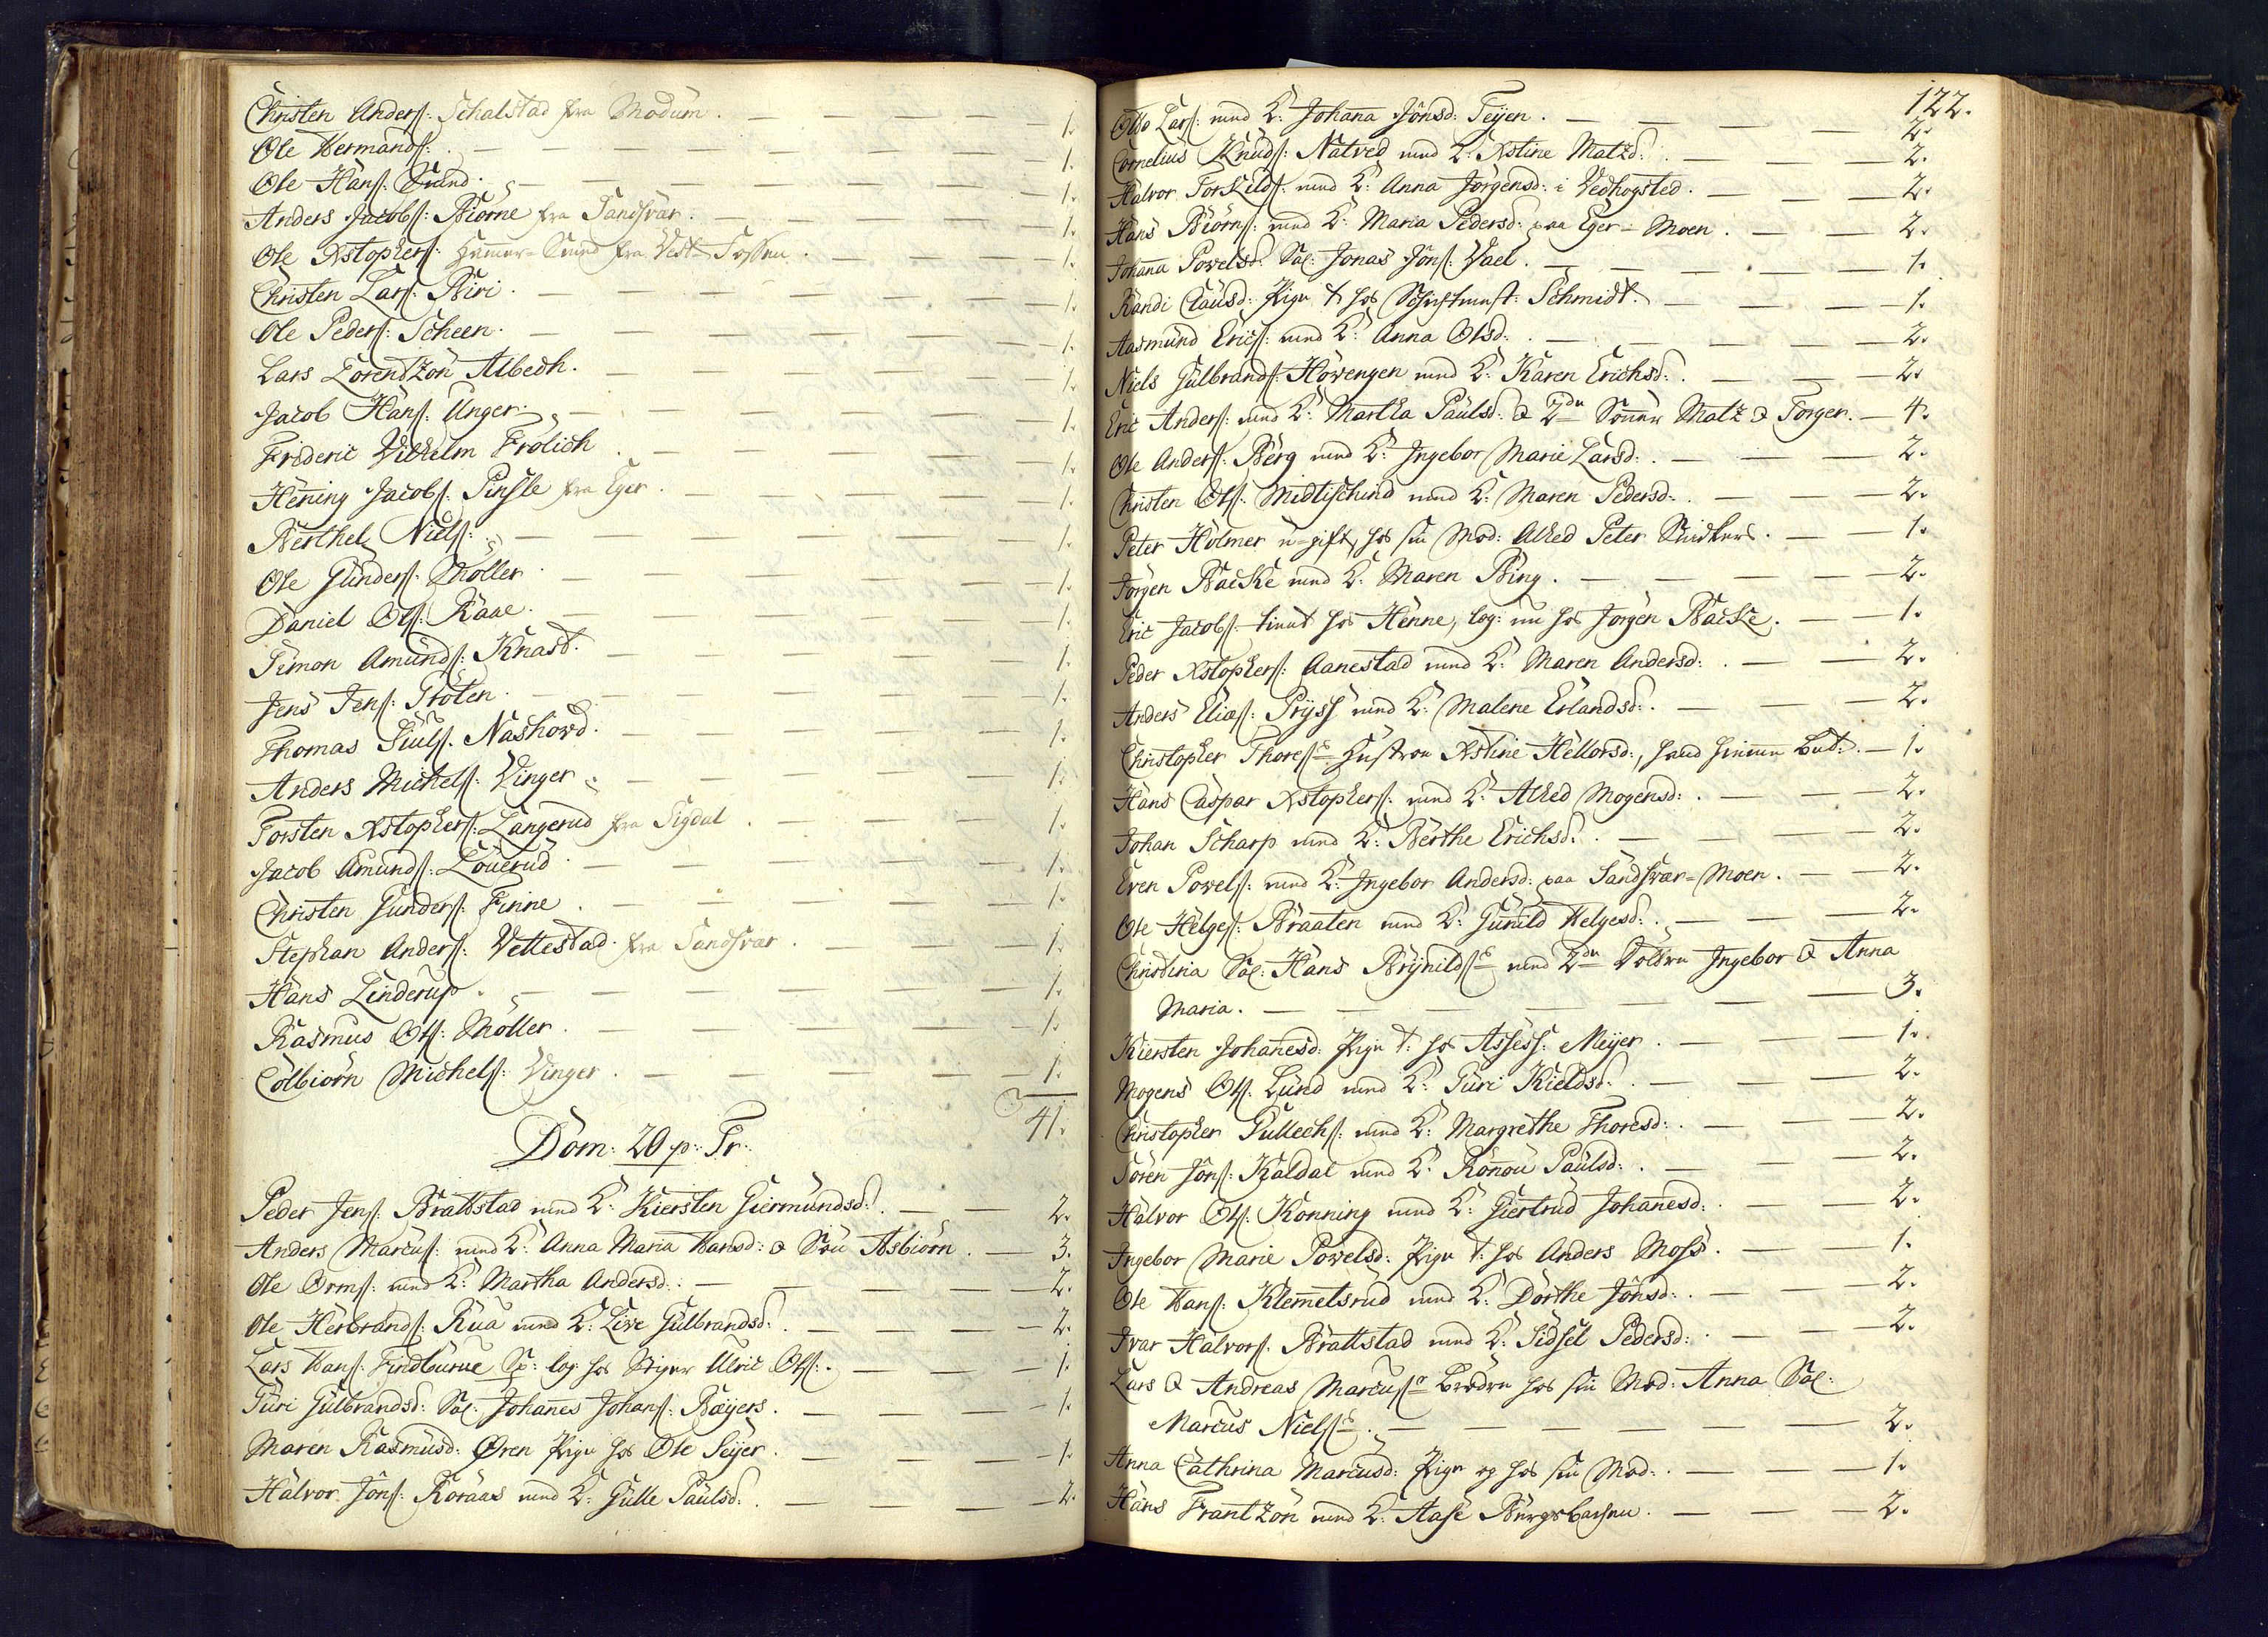 Christen Anders: Schalstad fra Modum. 1.
Ole Hermands: 1.
Ole Hans: Smed. 1.
Anders Jacobs: Biörne fra Sandsvær. 1.
Ole Xstophers: Hammer-Smed fra Vest-Fossen. 1.
Christen Lars: Biri. 1.
Ole Peders: Scheen. 1.
Lars Lorendtzön Albedh. 1.
Jacob Hans: Unger. 1.
Frideric Vilhelm Frölich 1.
Hening Jacobs: Pinsle fra Eger. 1.
Berthel Niels: 1.
Ole Gunders: Möller 1.
Daniel Ols: Raae. 1.
Simon Amunds: Knast. 1.
Jens Jens: Stöten. 1.
Thomas Siuls: Nashovd. 1.
Anders Michels: Vinger 1.
Torsten Xstophers: Langerud fra Sigdal 1.
Jacob Amunds: Löuerud 1.
Christen Gunders: Finne. 1.
Stephan Anders: Vettestad fra Sandsvær. 1.
Hans Linderup. 1.
Rasmus Ols: Möller. 1.
Colbiörn Michels: Vinger. 1.
41.
Dom: 20 p: Tr:
Peder Jens: Brattstad med K: Kiersten Giermundsd: 2.
Anders Marcus: med K: Anna Maria Hansd: & Sön Asbiörn. 3.
Ole Orms: med K: Martha Andersd: 2.
Ole Herbrands: Rua med K: Live Gulbrandsd: 2.
Lars Hans: Findburue Sp: log: hos Stiger Ulric Ols: 1.
Turi Gulbrandsd: Sal: Johannes Johans: Bæyers. 1.
Maren Rasmusd: Ören Pige hos Ole Seyer. 1.
Halvor Jöns: Roraas med K: Gulle Paulsd: 2.
122.
Otto Lars: med K: Johanna Jönsd: Teyen. 2.
Cornelius Knuds: Natved med K: Xstine Matzd: 2.
Halvor Torkilds: med K: Anna Jörgensd: i Vedhogsted. 2.
Hans Biörns: med K: Maria Pedersd: paa Eger-Moen. 2.
Johanna Povelsd: Sal: Jonas Jöns: Vael. 1.
Randi Clausd: Pige t: hos Schichtmest: Schmidt. 1.
Aasmund Erics: med K: Anna Olsd: 2.
Niels Gulbrands: Hovengen med K: Karen Erichsd: 2.
Eric Anders: med K: Martha Paulsd: & 2de Sönner Matz & Torger. 4.
Ole Anders: Berg med K: Ingebor Marie Larsd: 2.
Christen Ols: Midtischind med K: Maren Pedersd: 2.
Peter Holmer u-gift, hos sin Mod: Alhed Peter Snidkers. 1.
Jörgen Backe med K: Maren Bing. 2.
Eric Jacobs: tient hos Henne, log: nu hos Jörgen Backe. 1.
Peder Xstophers: Aanestad med K: Maren Andersd: 2.
Anders Elias: Pryss med K: Malene Erlandsd: 2.
Christopher Thores: Hustroe Xstine Hellorsd:, 1.
Hans Caspar Xstophers: med K: Alhed Mogensd: 2.
Johan Scharp med K: Berthe Erichsd: 2.
Even Povels: med K: Ingebor Andersd: paa Sandsvær-Moen. 2.
Ole Helges: Braaten med K: Gunild Helgesd: 2.
Christina Sal: Hans Brynilds: med 2de Döttre Ingebor & Anna
Maria. 3.
Kiersten Johanesd: Pige t: hos Assess: Meyer. 1.
Mogens Ols: Lund med K: Turi Kieldsd: 2.
Christopher Tullechs: med K: Margrethe Thoresd: 2.
Sören Jöns: Kaldal med K: Ronnou Paulsd: 2.
Halvor Ols: Konning med K: Giertrud Johanesd: 2.
Ingebor Marie Povelsd: Pige t: hos Anders Moss. 1.
Ole Hans: Klemmetsrud med K: Dorthe Jönsd: 2.
Ivar Halvors: Brattstad med K: Sidsel Pedersd: 2.
Lars & Andreas Marcus: Brödre hos sin Mod: Anna Sal:
Marcus Niels: 2.
Anna Cathrina Marcusd: Pige og hos sin Mod: 1.
Hans Frantzön med K: Aase Bergsbachen. 2.